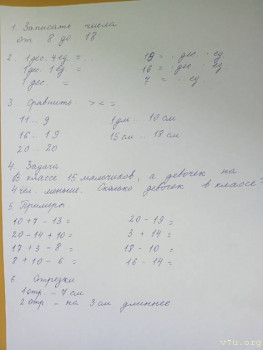 1. Записать числа
от 8 до 18
2. 1 дес. 4 ед = .. 19 = . дес. . ед
1 дес. 1 ед = . 16 = . дес . ед
1 дес. = . 7 = . ед
3 Сравнить > < =
11 .. 9 1 дм .. 10 см
16 .. 19 15 см .. 18 см
20 .. 20
4. Задача
В классе 15 мальчиков, а девочек на
4 меньше. Сколько девочек в классе?
5. Примеры
10 + 7 - 13 = 20 - 13 =
20 - 14 + 10 = 3 + 14 =
17 + 3 - 8 = 18 - 10 =
8 + 10 - 6 = 16 - 14 =
Отрезки
1 отр. - 7 см.
2 отр - на 3 см длиннее
v7u.org